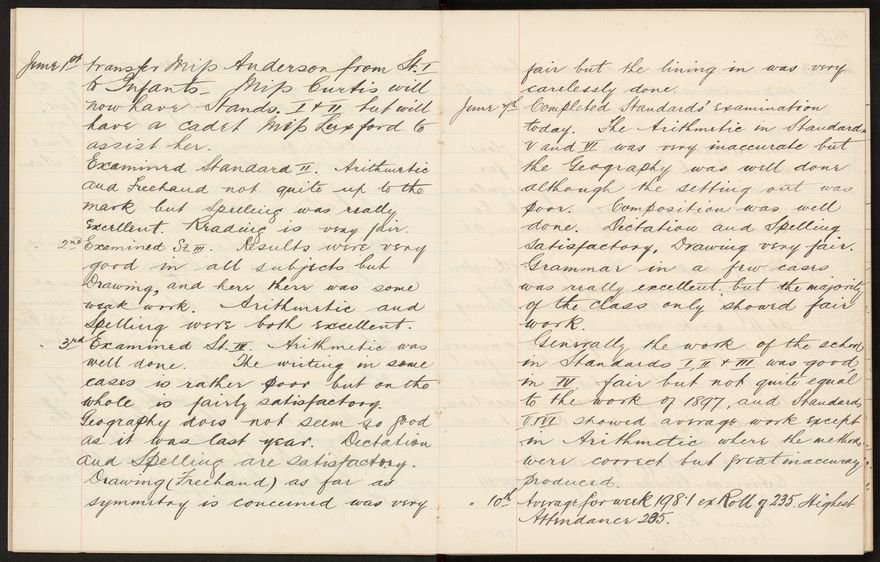 June 1st transfer Miss Anderson from St. I
to Infants. Miss Curtis will
now have Stands. I & II but will
have a cadet Miss Luxford to
assist her.
Examined Standard II. Arithmetic
and Freehand not quite up to the
mark but Spelling was really
Excellent. Reading is very fair.
2nd Examined St. III. Results were very
good in all subjects but
Drawing, and here there was some
weak work. Arithmetic and
Spelling were both excellent.
3rd Examined St. IV. Arithmetic was
well done. The writing in some
cases is rather poor but on the
whole is fairly satisfactory.
Geography does not seem so good
as it was last year. Dictation
and Spelling are satisfactory.
Drawing (Freehand) as far as
symmetry is concerned was very
fair but the lining in was very
carelessly done.
June 7th Completed Standards' Examination
today. The Arithmetic in Standards
V and VI was very inaccurate but
the Geography was well done
although the setting out was
poor. Composition was well
done. Dictation and Spelling
satisfactory, Drawing very fair.
Grammar in a few cases
was really excellent but the majority
of the class only showed fair
work.
Generally the work of the school
in Standards I, II & III was good
in IV, fair but not quite equal
to the work of 1897, and Standards
V & VI showed average work except
in Arithmetic where the methods
were correct but great inaccuracy
produced.
10th Average for week 198.1 ex Roll of 235. Highest
Attendance